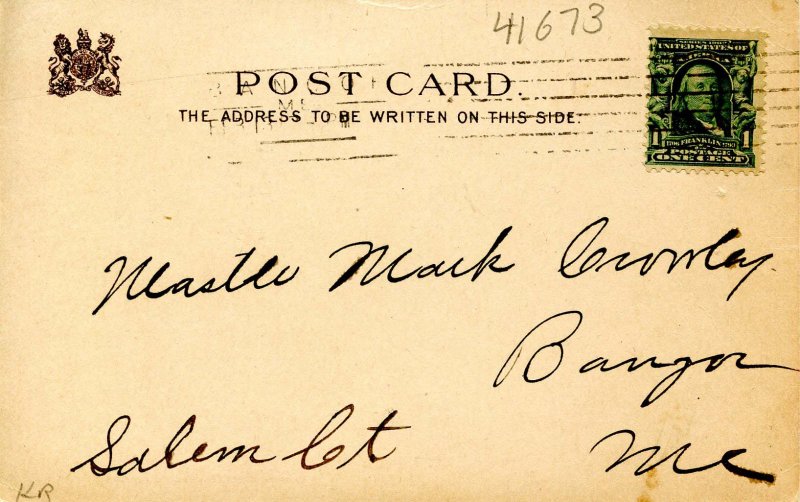 41673
SERIES 1902
UNITED STATES OF
AMERICA
POST CARD.
THE ADDRESS TO BE WRITTEN ON THIS SIDE.
1 1706 FRANKLIN 1790 1
POSTAGE
ONE CENT
Master Mark Crowley
Bangor
Salem Ct Me
KR